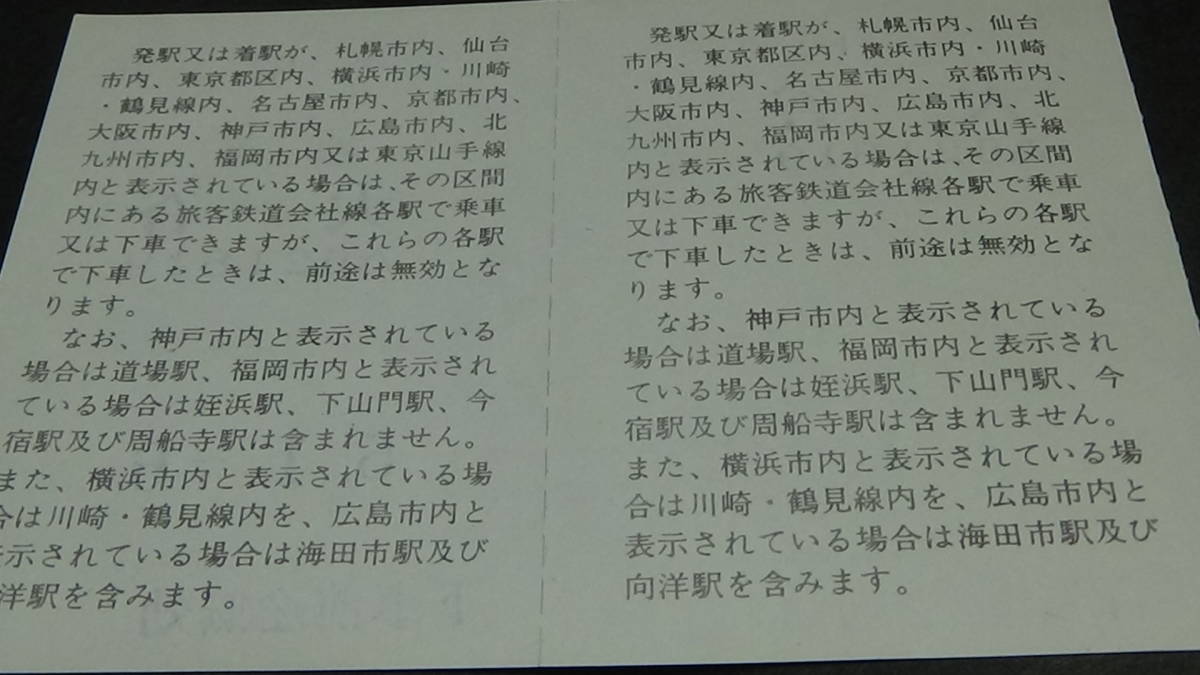 発駅又は着駅が、札幌市内、仙台
市内、東京都区内、横浜市内・川崎
・鶴見線内、名古屋市内、京都市内、
大阪市内、神戸市内、広島市内、北
九州市内、福岡市内又は東京山手線
内と表示されている場合は、その区間
内にある旅客鉄道会社線各駅で乗車
又は下車できますが、これらの各駅
で下車したときは、前途は無効とな
ります。
なお、神戸市内と表示されている
場合は道場駅、福岡市内と表示され
ている場合は姪浜駅、下山門駅、今
宿駅及び周船寺駅は含まれません。
また、横浜市内と表示されている場
合は川崎・鶴見線内を、広島市内と
表示されている場合は海田市駅及び
洋駅を含みます。
発駅又は着駅が、札幌市内、仙台
市内、東京都区内、横浜市内・川崎
・鶴見線内、名古屋市内、京都市内、
大阪市内、神戸市内、広島市内、北
九州市内、福岡市内又は東京山手線
内と表示されている場合は、その区間
内にある旅客鉄道会社線各駅で乗車
又は下車できますが、これらの各駅
で下車したときは、前途は無効とな
ります。
なお、神戸市内と表示されている
場合は道場駅、福岡市内と表示され
ている場合は姪浜駅、下山門駅、今
宿駅及び周船寺駅は含まれません。
また、横浜市内と表示されている場
合は川崎・鶴見線内を、広島市内と
表示されている場合は海田市駅及び
向洋駅を含みます。